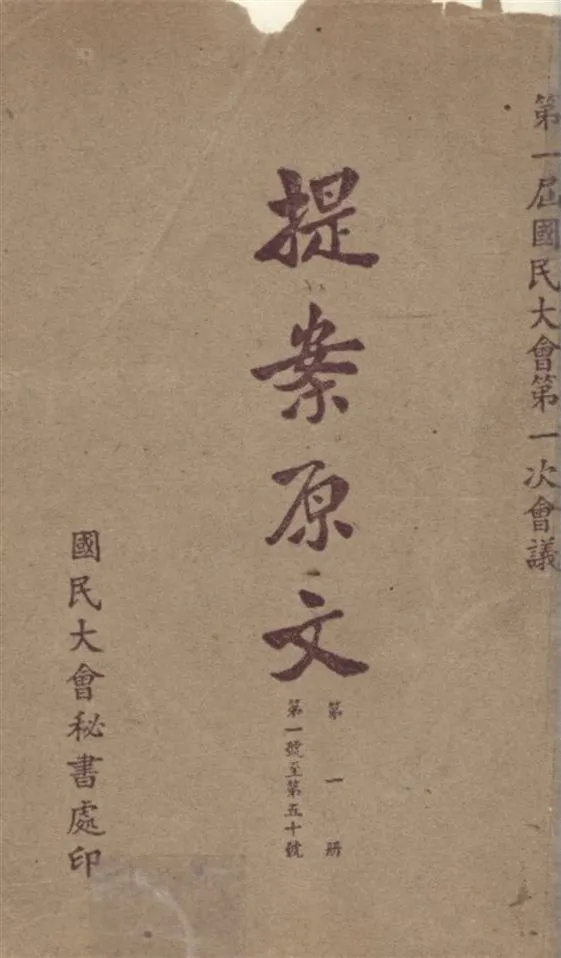 第一屆國民大會第一次會議
提案原文
第一册
第一號至第五十號
國民大會秘書處印